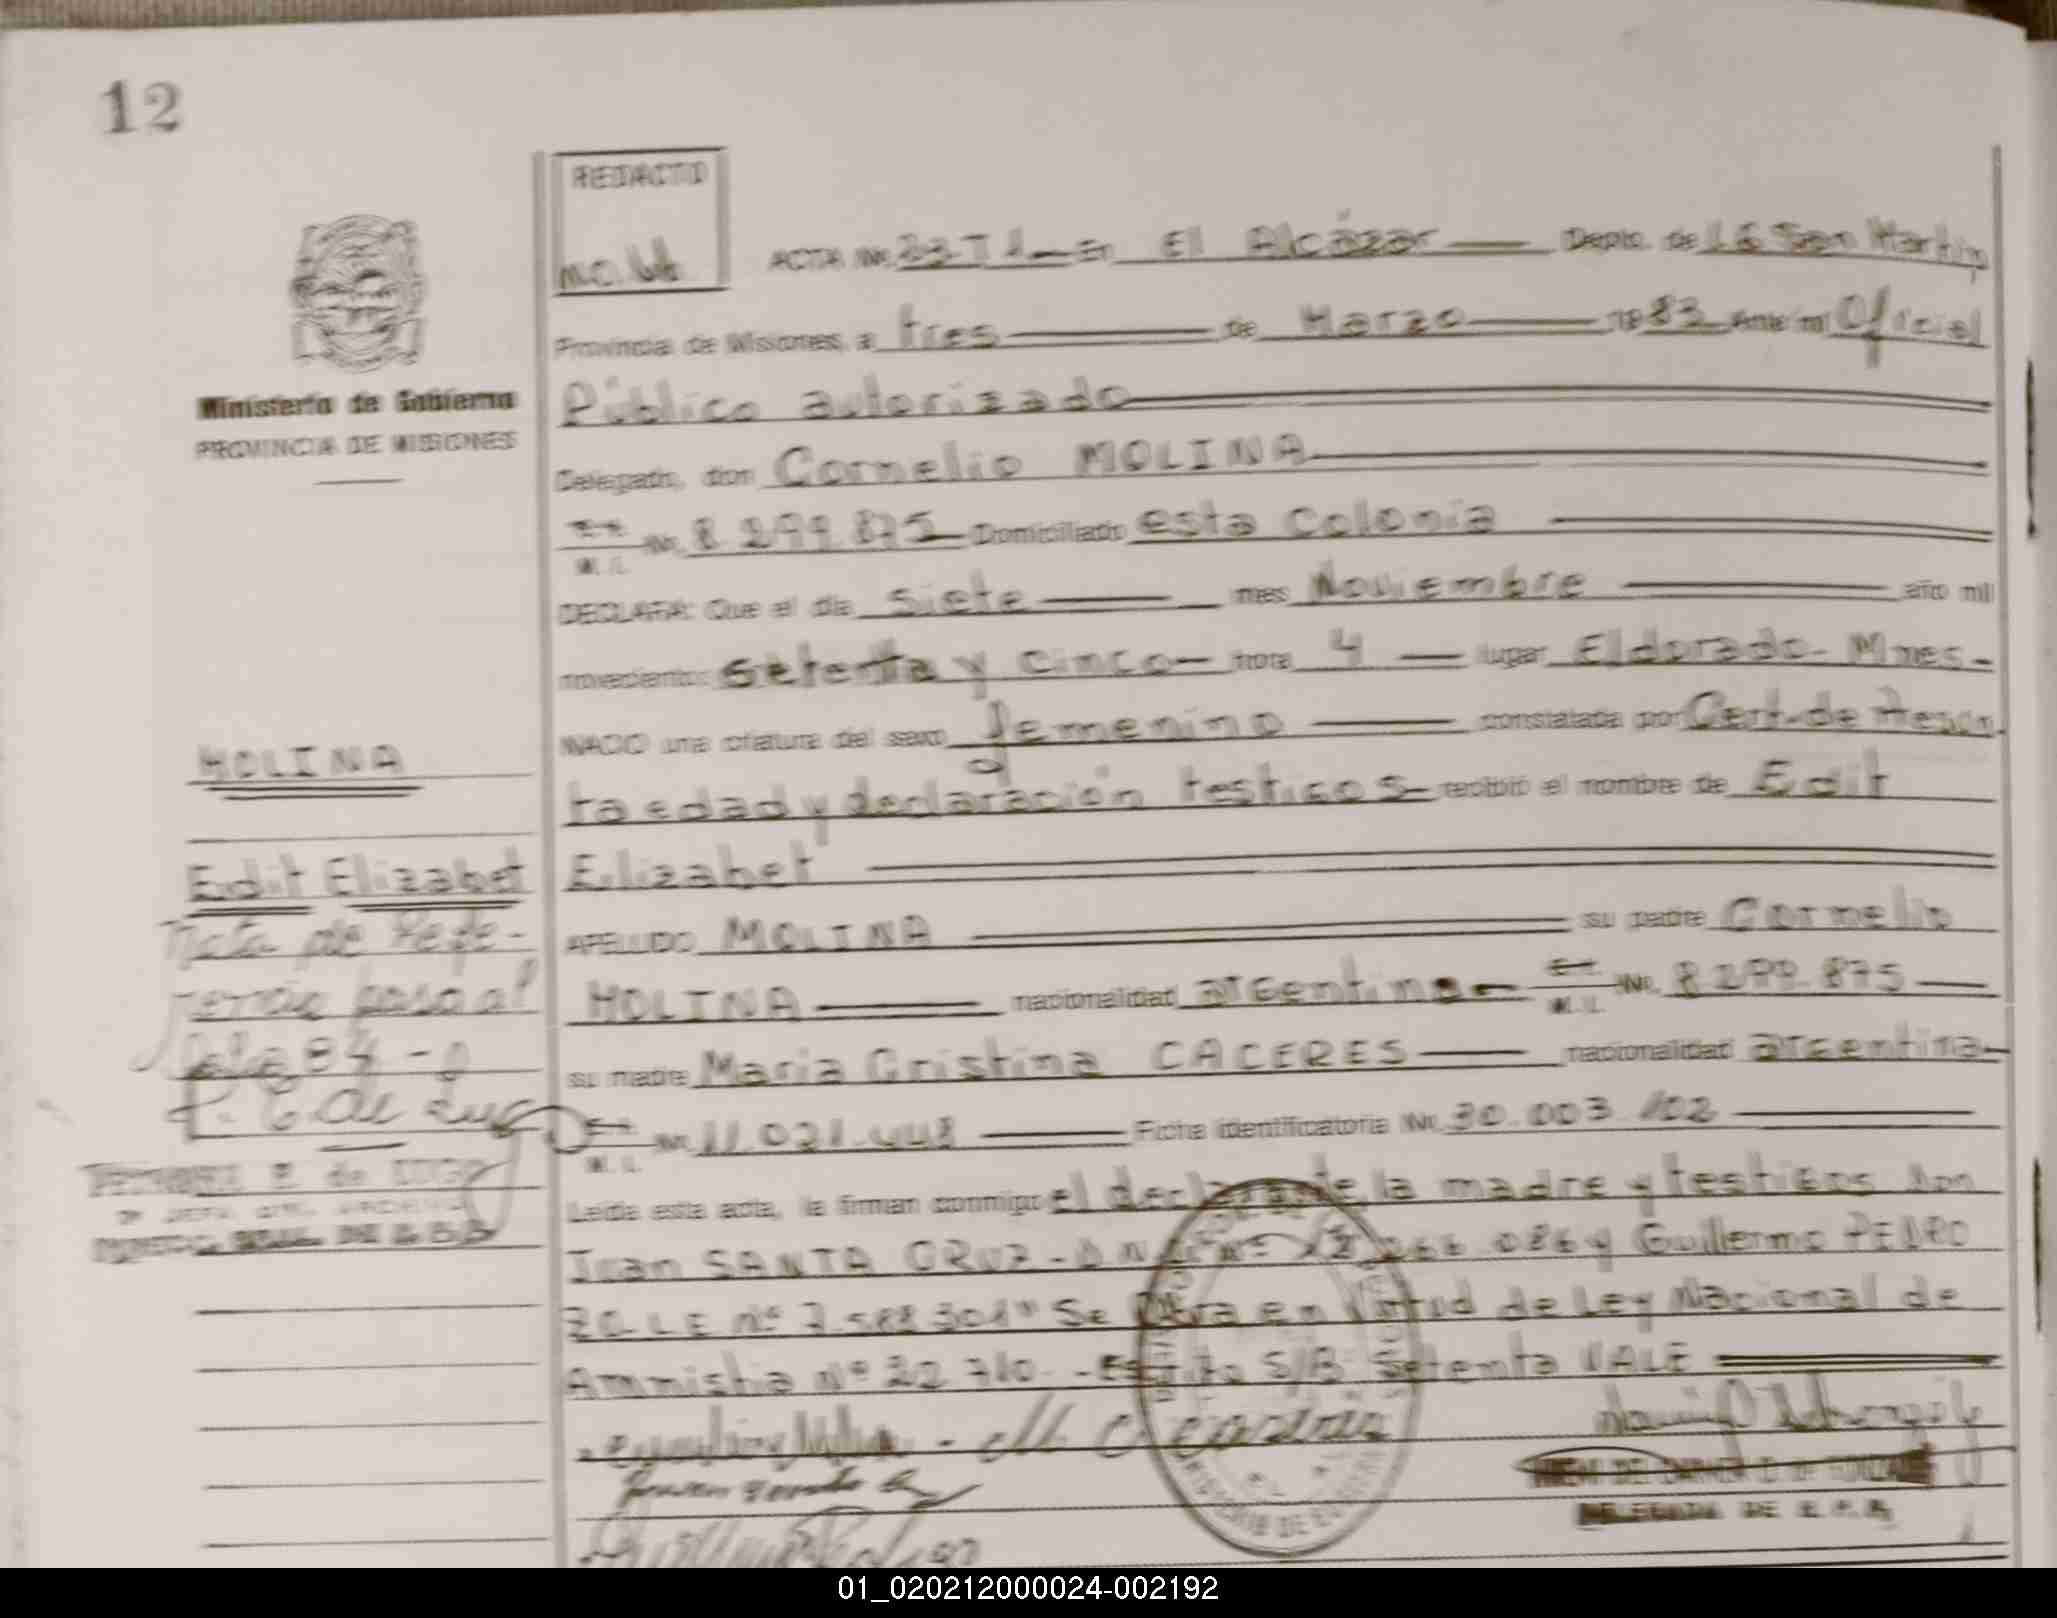 12
REDACTO
ACTA Nº 23-T I — En El Alcázar — Depto. de L G San Martín
Provincia de Misiones, a tres — de Marzo — 19 83 Ante mi Oficial
Ministerio de Gobierno
Público autorizado
PROVINCIA DE MISIONES
Delegado, don Cornelio MOLINA
M. I. Nº 8.299.875 Domiciliado esta colonia
DECLARA: Que el día siete — mes Noviembre — año mil
novecientos setenta y cinco — hora 4 — lugar Eldorado - Mnes -
NACIO una criatura del sexo femenino — constatada por Cert. de Presun
MOLINA
ta edad y declaración testigos — recibió el nombre de Edit
Edit Elizabet
Elizabet
APELLIDO MOLINA — su padre Cornelio
MOLINA — nacionalidad argentina — M. I. Nº 8.299.875 —
su madre Maria Cristina CACERES — nacionalidad argentina —
M. I. Nº 11.021.448 — Ficha identificatoria Nº 30.003/02
Nota de Refe-
Leída esta acta, la firman conmigo el declarante, la madre y testigos don
Juan SANTA CRUZ - D N I Nº 086 y Guillermo PEDRO
ZO L E Nº 7.588.301" Se labra en Virtud de Ley Nacional de
Amnistia Nº 22.710 - Escrito S/B: Setenta VALE
DELEGADA DE R. P.
01_020212000024-002192